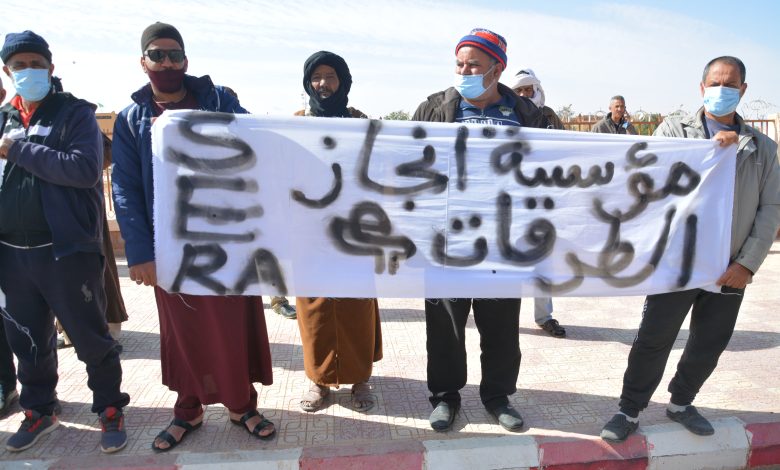 مؤسسة انجاز
الطرقات
S
E
RA